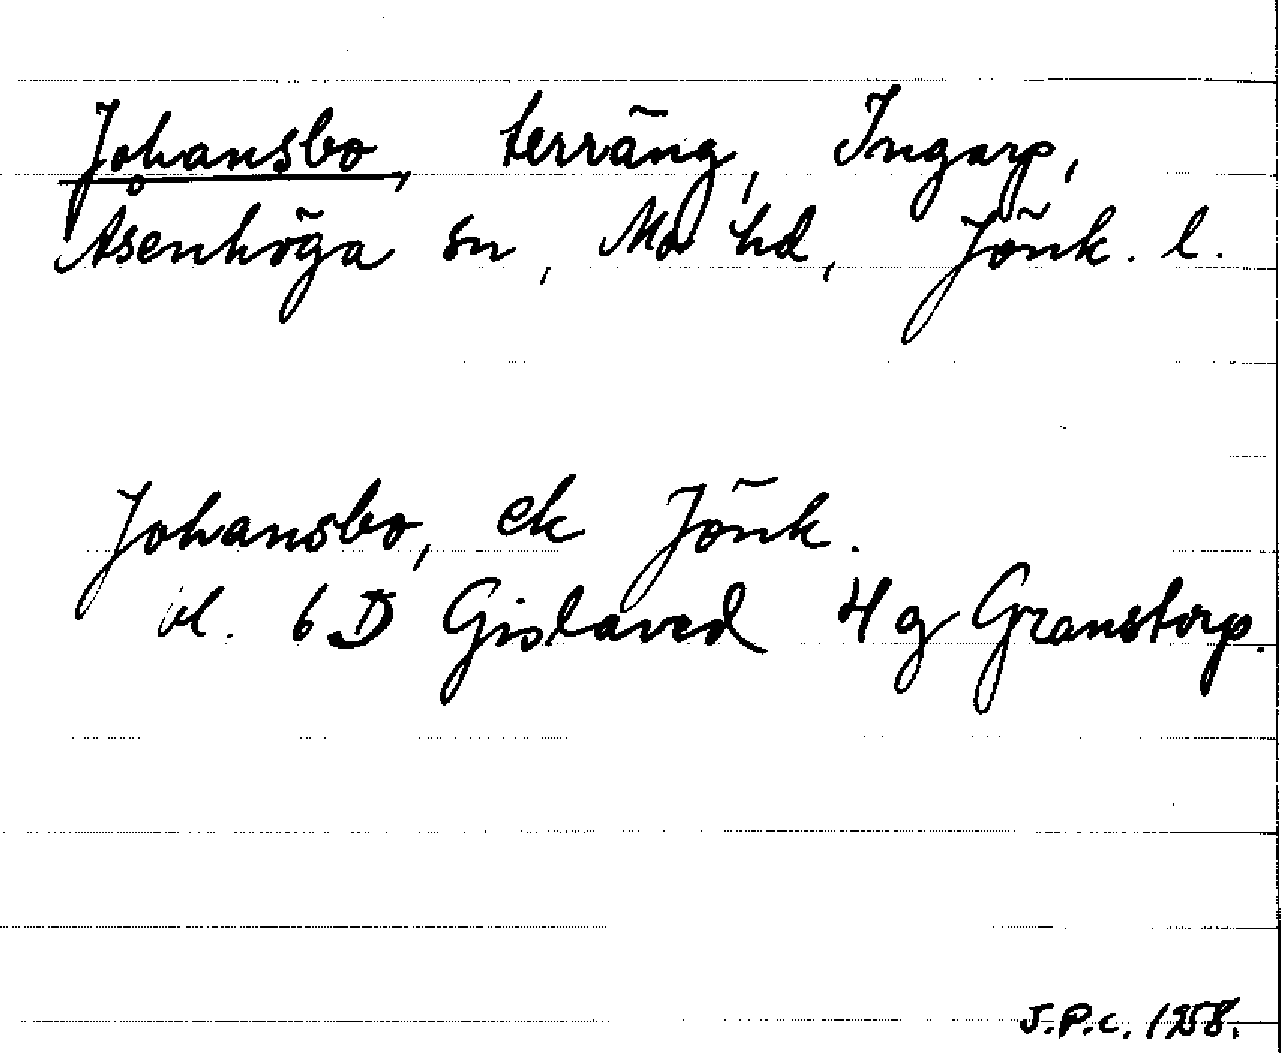 Johansbo, terräng, Ingarp,
Åsenhöga sn, Mo hd, Jönk. l.
Johansbo, ek Jönk.
bl. 6D Gislaved 4g Granstorp.
J.P.c. 1958.